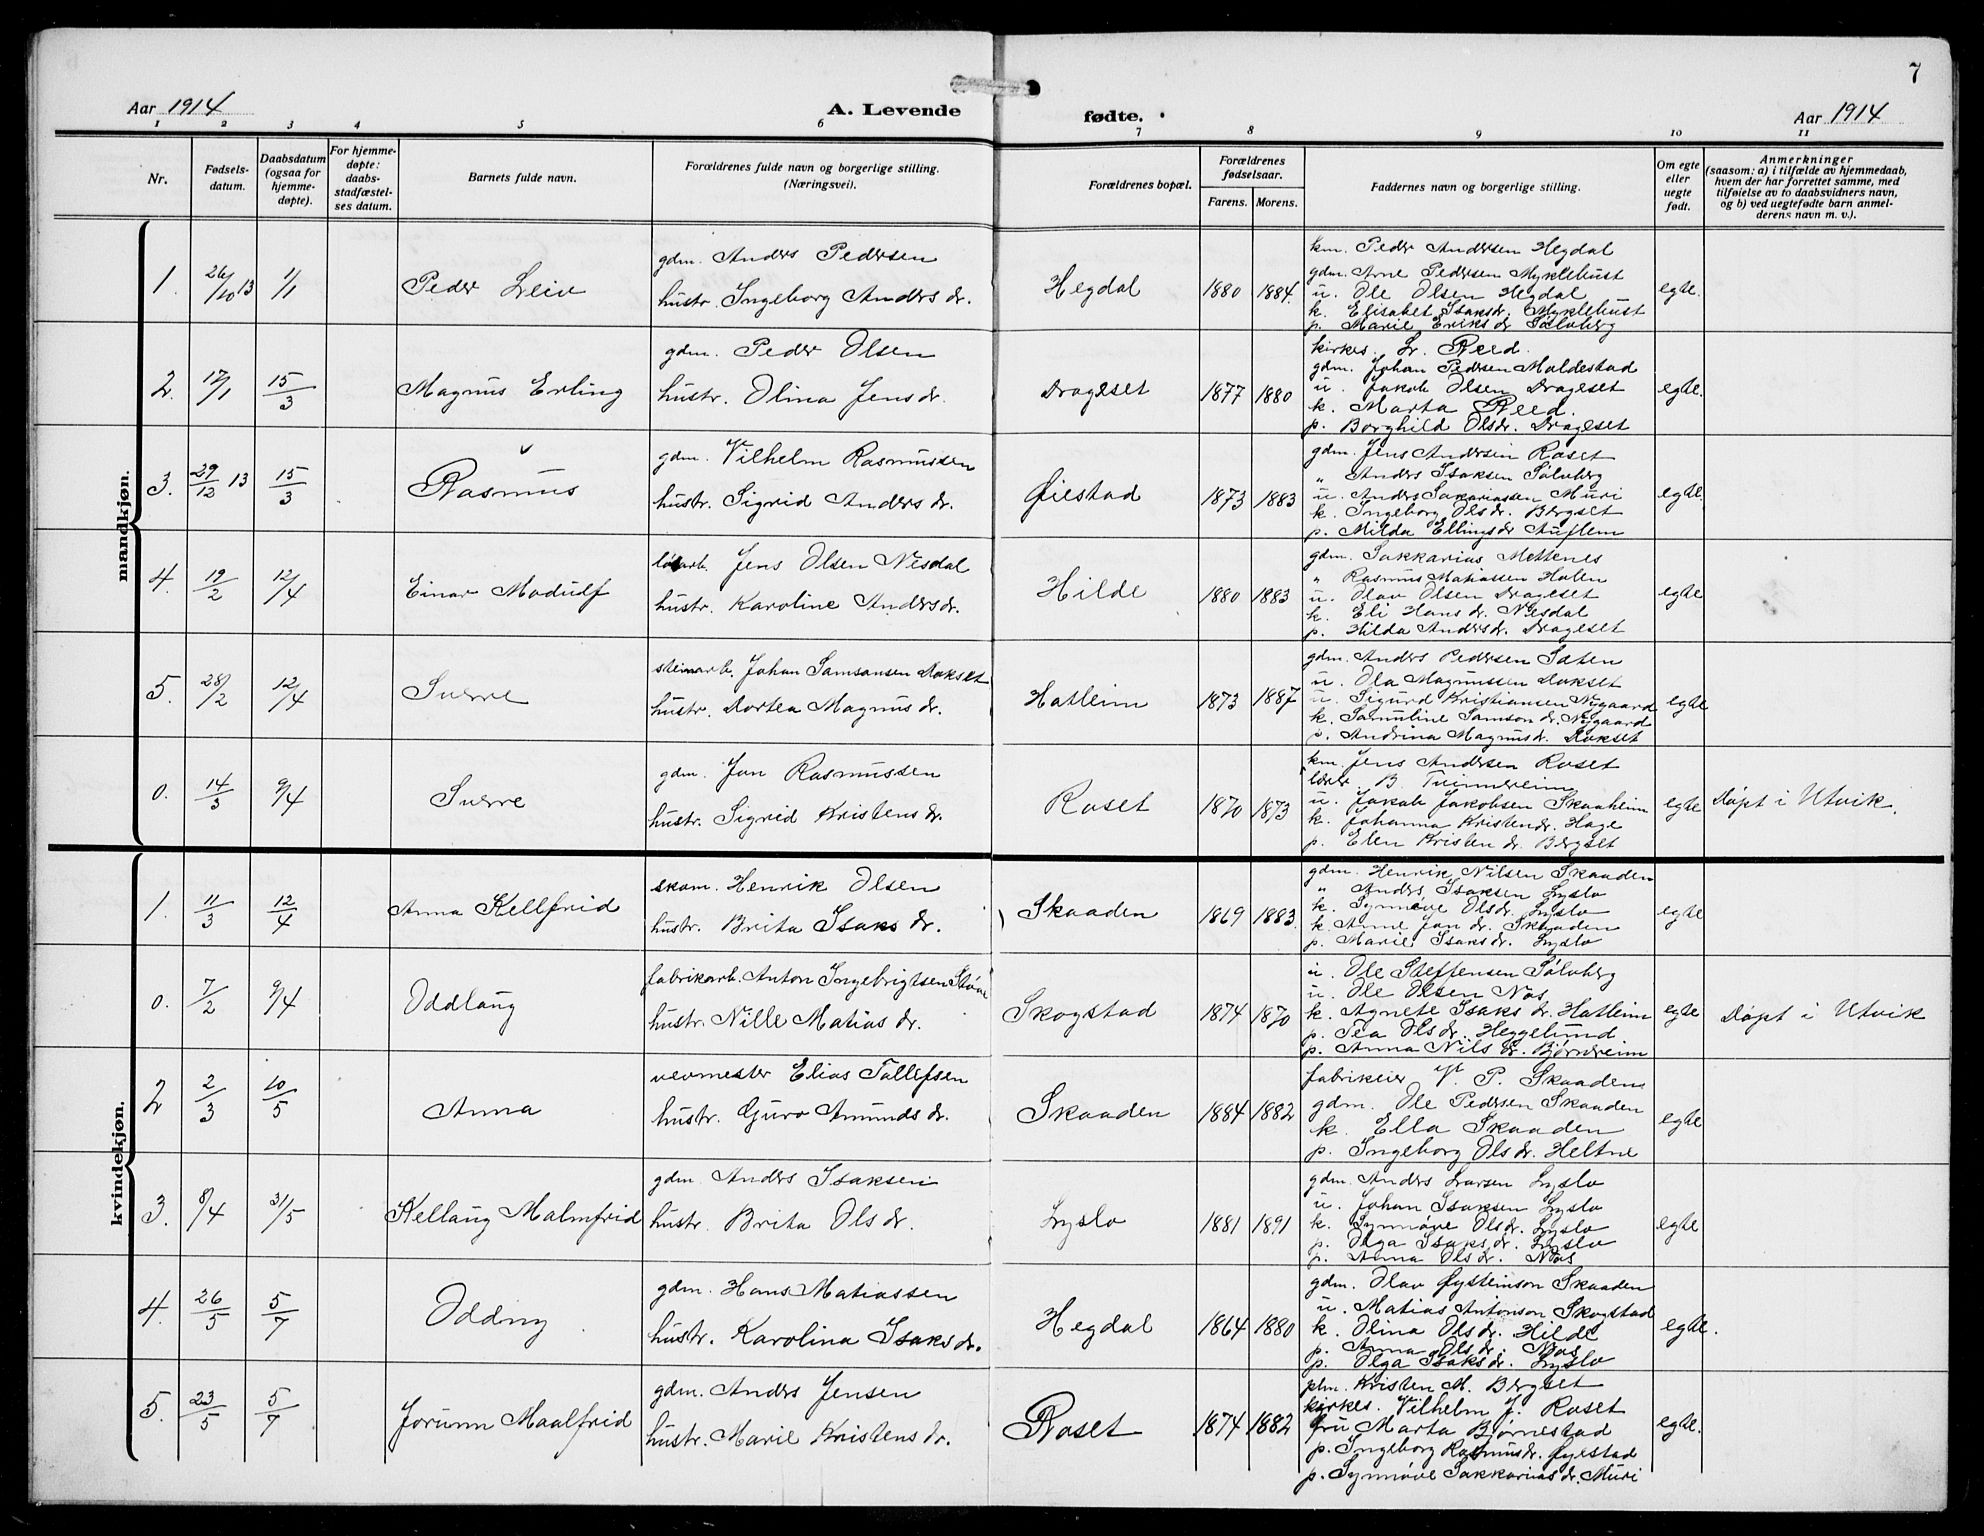 7
Aar 1914
A. Levende fødte.
Aar 1914
1 2 3 4 5 6 7 8 9 10 11
Nr.
Fødsels-
datum.
Daabsdatum
(ogsaa for
hjemme-
døpte).
For hjemme-
døpte:
daabs-
stadfæstel-
ses datum.
Barnets fulde navn.
Forældrenes fulde navn og borgerlige stilling.
(Næringsvei).
Forældrenes bopæl.
Forældrenes
fødselsaar.
Farens. Morens.
Faddernes navn og borgerlige stilling.
Om egte
eller
uegte
født.
Anmerkninger
(saasom: a) i tilfælde av hjemmedaab,
hvem der har forrettet samme, med
tilføielse av to daabsvidners navn,
og b) ved uegtefødte barn anmel-
derens navn m. v.).
mandkjøn.
1. 26/10 13 1/1 Peder Leiv
gdm. Anders Pedersen
hustr. Ingeborg Anders dr.
Hegdal 1880 1884.
km. Peder Andersen Hegdal
gdm. Arne Pedersen Myklebust
u. Ole Olsen Hegdal
k. Elisabet Isaksdr. Myklebust
p. Marie Eriks dr Sølvberg
egte.
2. 17/1 15/3 Magnus Erling
gdm. Peder Olsen
hustr. Olina Jensdr.
Drageset 1877 1880
kirkes. Lr. Reed.
gdm. Johan Pedersen Moldestad
u. Jakob Olsen Drageset
k. Marta Reed.
p. Borghild Olsdr. Drageset
egte.
3. 29/12 13 15/3 Rasmus
gdm. Vilhelm Rasmussen
hustr. Sigrid Anders dr.
Øiestad 1873 1883
gdm. Jens Andersen Roset
" Anders Isaksen Sølvberg
u. Anders Sakariassen Muri
k. Ingeborg Olsdr. Bergset
p. Milda Ellingsdr Auflem
egte.
4. 19/2 12/4 Einar Modulf
løsarb. Jens Olsen Nesdal
hustr. Karoline Andersdr.
Hilde 1880 1883
gdm. Sakkarias Mettenes
" Rasmus Matiassen Holen
u. Olav Olsen Drageset
k. Eli Hans dr. Nesdal
p. Hilda Andersdr. Drageset
egte
5. 28/2 12/4 Sverre
steinarb. Johan Samsonsen Dokset
hustr. Dortea Magnus dr.
Hatleim 1873 1887
gdm. Anders Pedersen Saten
u. Ola Magnussen Dokset
u. Sigurd Kristiansen Nygaard
k. Samuline Samson dr. Nygaard
p. Andrina Magnusdr. Dokset
egte
0. 14/3 9/4 Sverre
gdm. Jon Rasmussen
hustr. Sigrid Kristens dr.
Roset 1870 1873
km. Jens Andersen Roset
lærer B. Tvinnereim
u. Jakob Jakobsen Skaaheim
k. Johanna Kristendr. Hage
p. Elen Kristen dr. Bergset
egte Døpt i Utvik.
kvindekjøn.
1. 11/3 12/4 Anna Kellfrid
skom. Henrik Olsen
hustr. Brita Isaks dr.
Skaaden 1869 1883.
gdm. Henrik Nilsen Skaaden
" Anders Isaksen Lyslo
k. Synnøve Olsdr. Lyslo
k. Anne Jon dr. Skaaden
p. Marie Isaksdr. Lyslo
egte
0. 7/2 9/4 Oddlaug
fabrikarb. Anton Ingebrigtsen Støve
hustr. Nille Matias dr.
Skogstad 1874 1870
u. Ole Steffensen Sølvberg
u. Ole Olsen Nos
k. Agnete Isaks dr. Hatleim
p. Tea Olsdr. Heggelund
p. Anna Nils dr. Bjørnreim
egte Døpt i Utvik
2 2/3 10/5 Anna
vevmester Elias Tollefsen
hustr. Guro Amunds dr.
Skaaden 1884 1882
fabrikeier V. P. Skaaden
gdm. Ole Pedersen Skaaden
k. Ella Skaaden
p. Ingeborg Olsdr. Heltne
egte
3. 8/4 31/5 Kellaug Malmfrid
gdm. Anders Isaksen
hustr. Brita Ols dr.
Lyslo 1881 1891
gdm. Anders Larsen Lyslo
u. Johan Isaksen Lyslo
k. Synnøve Olsdr. Lyslo
p. Olga Isaksdr. Lyslo
p. Anna Olsdr. Nos
egte
4. 26/5 5/7 Oddny
gdm. Hans Matiassen
hustr. Karolina Isaksdr.
Hegdal 1864 1880
gdm. Olav Øysteinson Skaaden
u. Matias Antonson Skogstad
k. Olina Olsdr. Hilde
p. Anna Olsdr. Nos
p. Olga Isaksdr. Lyslo
egte.
5. 23/5 5/7 Jorunn Maalfrid
gdm. Anders Jensen
hustr. Marie Kristens dr.
Roset 1874 1882
plm. Kristen M. Bergset
kirkes. Vilhelm J. Roset
fru Marta Bjørnestad
p. Ingeborg Rasmusdr. Øyestad
p. Synnøve Sakkarias dr. Muri
egte.